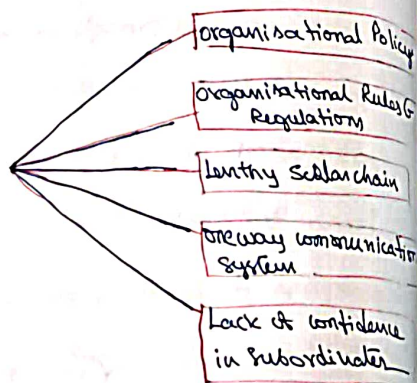 organisational Policy
organisational Rules &
Regulations
Lenthy Scalar chain
oneway communication
system
Lack of confidence
in subordinates